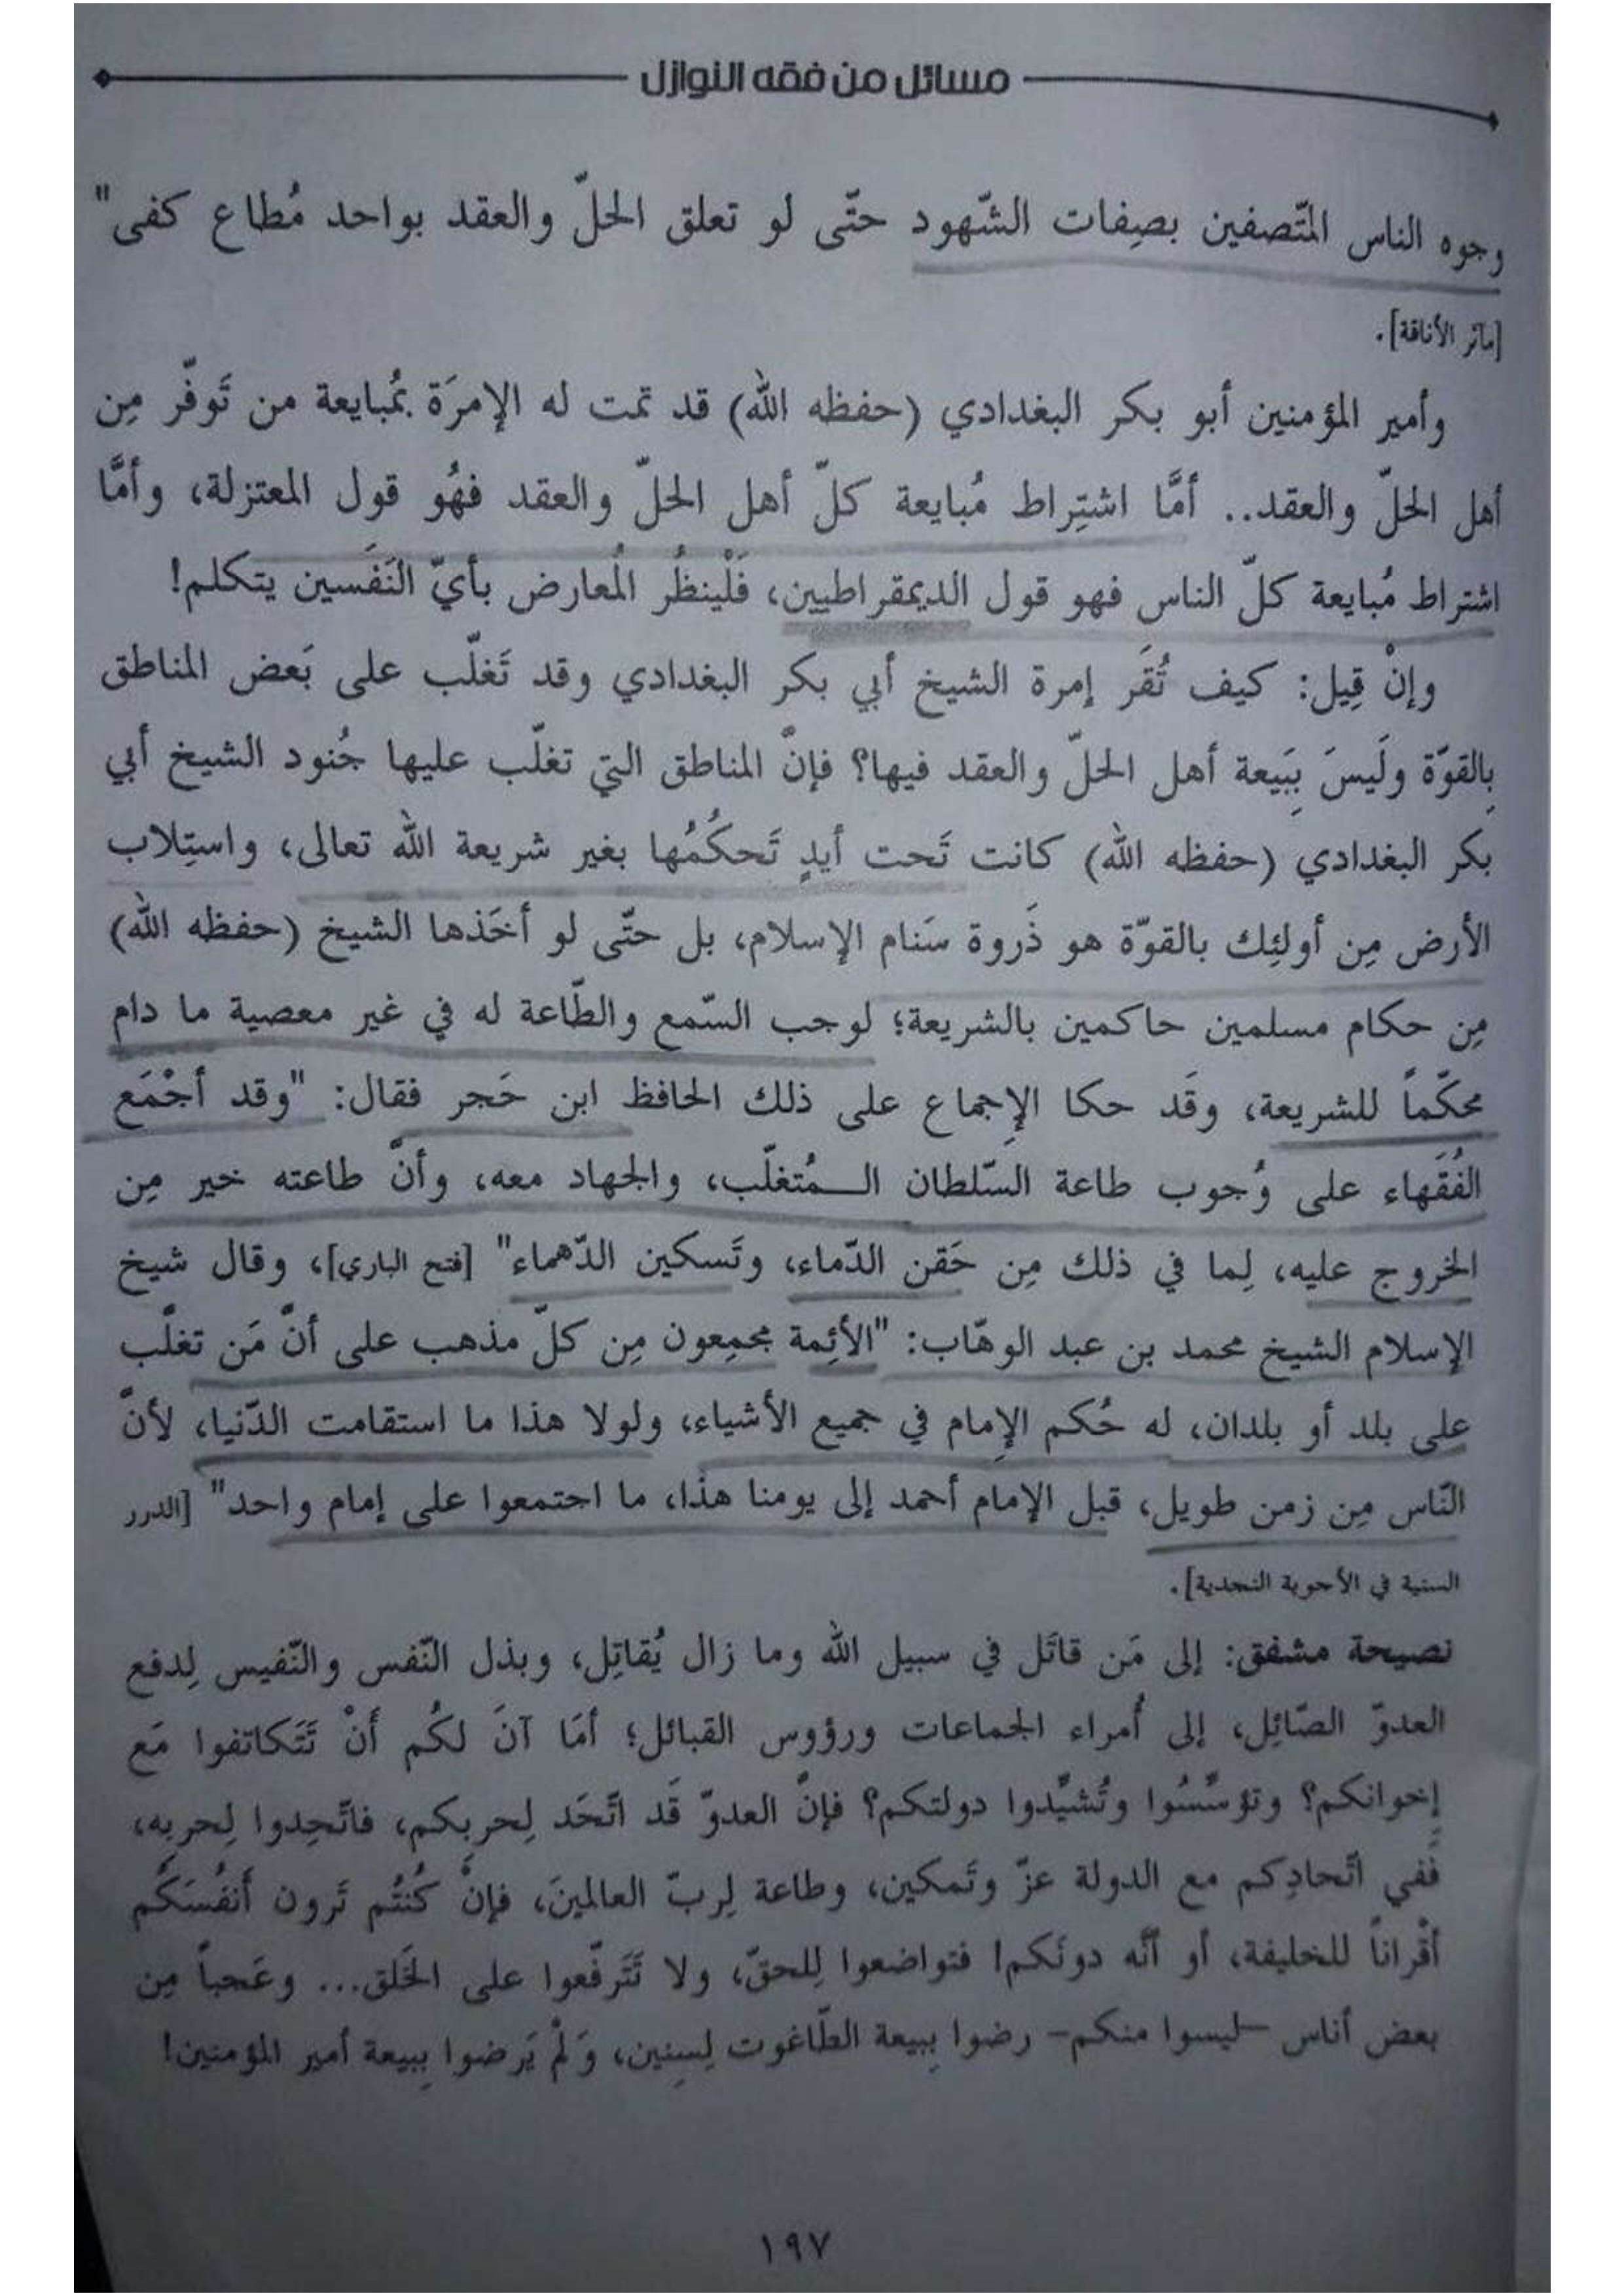 مسائل من فقه النوازل
وجوه الناس المتّصفين بصِفات الشّهود حتّى لو تعلق الحلّ والعقد بواحد مُطاع كفى"
[مآثر الأناقة].
وأمير المؤمنين أبو بكر البغدادي (حفظه الله) قد تمت له الإمرَة بمُبايعة من تَوفّر مِن
أهل الحلّ والعقد.. أمَّا اشتِراط مُبايعة كلّ أهل الحلّ والعقد فهُو قول المعتزلة، وأمَّا
اشتراط مُبايعة كلّ الناس فهو قول الديمقراطيين، فَلْينظُر المُعارض بأيّ النَفَسين يتكلم!
وإنْ قِيل: كيف تُقَر إمرة الشيخ أبي بكر البغدادي وقد تَغلّب على بَعض المناطق
بِالقوّة ولَيسَ بِبَيعة أهل الحلّ والعقد فيها؟ فإنّ المناطق التي تغلّب عليها جُنود الشيخ أبي
بكر البغدادي (حفظه الله) كانت تَحت أيدٍ تَحكُمُها بغير شريعة الله تعالى، واستِلاب
الأرض مِن أولئِك بالقوّة هو ذَروة سَنام الإسلام، بل حتّى لو أخَذها الشيخ (حفظه الله)
مِن حكام مسلمين حاكمين بالشريعة؛ لوجب السّمع والطّاعة له في غير معصية ما دام
محكّماً للشريعة، وقَد حكا الإجماع على ذلك الحافظ ابن حَجر فقال: "وقد أجْمَع
الفُقَهاء على وُجوب طاعة السّلطان الـمُتغلّب، والجهاد معه، وأنّ طاعته خير مِن
الخروج عليه، لِما في ذلك مِن حَقن الدّماء، وتَسكين الدّهماء" [فتح الباري]، وقال شيخ
الإسلام الشيخ محمد بن عبد الوهّاب: "الأئِمة مجمِعون مِن كلّ مذهب على أنّ مَن تغلّب
على بلد أو بلدان، له حُكم الإمام في جميع الأشياء، ولولا هذا ما استقامت الدّنيا، لأنّ
النّاس مِن زمن طويل، قبل الإمام أحمد إلى يومنا هذا، ما اجتمعوا على إمام واحد" [الدرر
السنية في الأجوبة النجدية].
نصيحة مشفق: إلى مَن قاتَل في سبيل الله وما زال يُقاتِل، وبذل النّفس والنّفيس لِدفع
العدوّ الصّائِل، إلى أُمراء الجماعات ورؤوس القبائل؛ أمَا آنَ لكُم أَنْ تَتَكاتفوا مَع
إخوانكم؟ وتؤسِّسُوا وتُشيِّدوا دولتكم؟ فإنّ العدوّ قَد اتّحَد لِحربِكم، فاتّحِدوا لِحربِه،
فَفي اتّحادِكم مع الدولة عزّ وتَمكين، وطاعة لِربّ العالمينَ، فإنْ كُنتُم تَرون أَنفُسَكُم
أقْراناً للخليفة، أو أنَّه دونَكم! فتواضعوا لِلحقّ، ولا تَتَرفّعوا على الخَلق... وعَجباً مِن
بعض أناس -ليسوا منكم- رضوا بِبيعة الطّاغوت لِسِنِين، وَلَمْ يَرضوا بِبيعة أمير المؤمنين!
١٩٧